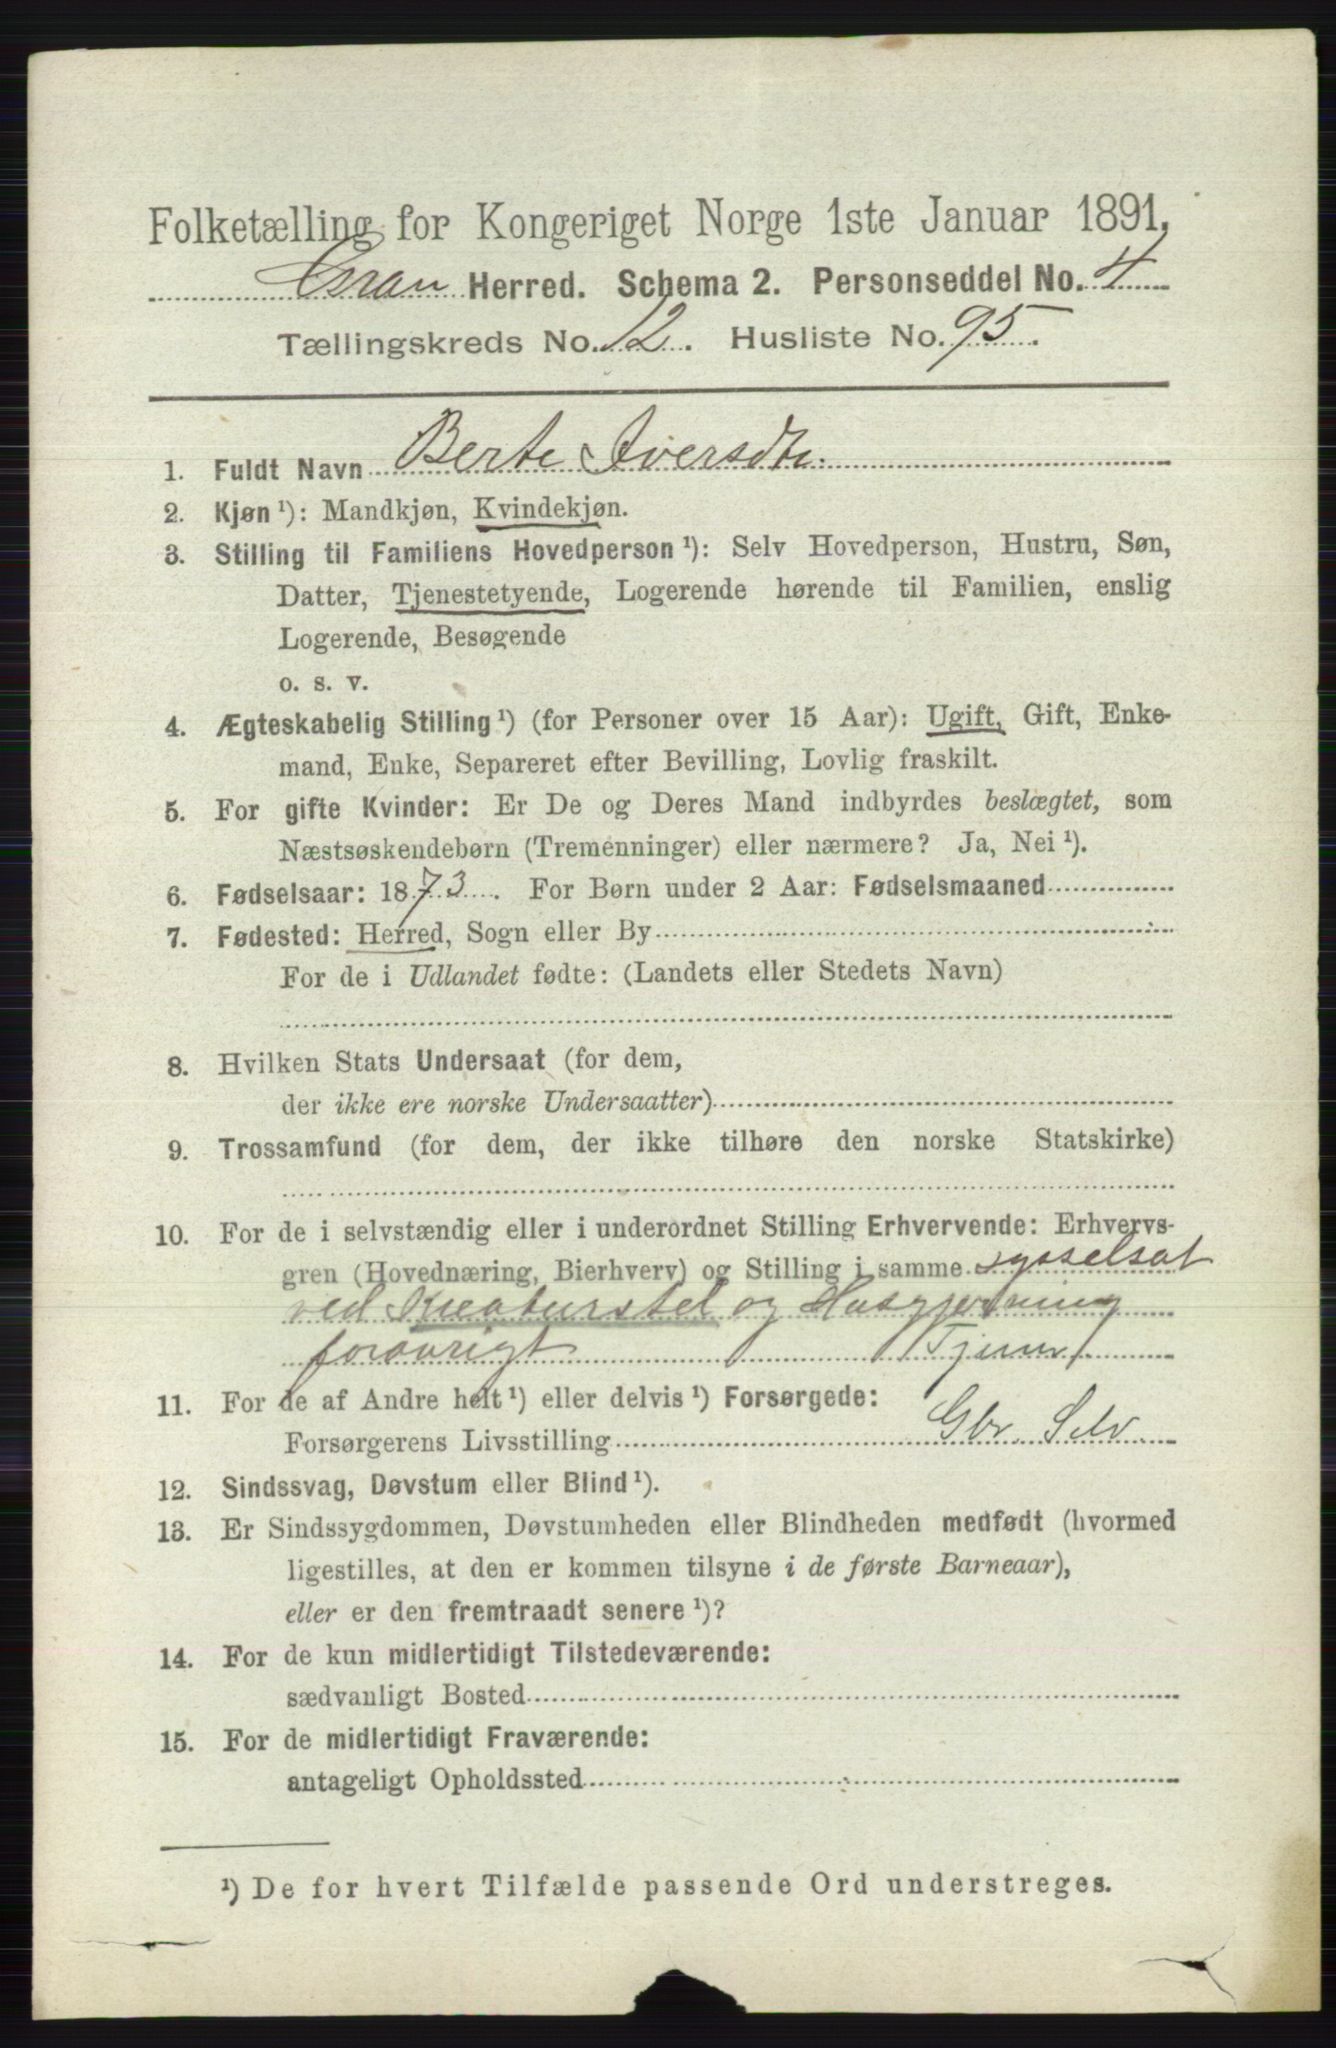 Folketælling for Kongeriget Norge 1ste Januar 1891.
Gran Herred. Schema 2. Personseddel No. 4
Tællingskreds No. 12. Husliste No. 95.
1. Fuldt Navn Berte Iversdtr.
2. Kjøn ¹): Mandkjøn, Kvindekjøn.
3. Stilling til Familiens Hovedperson ¹): Selv Hovedperson, Hustru, Søn,
Datter, Tjenestetyende, Logerende hørende til Familien, enslig
Logerende, Besøgende
o. s. v.
4. Ægteskabelig Stilling ¹) (for Personer over 15 Aar): Ugift, Gift, Enke-
mand, Enke, Separeret efter Bevilling, Lovlig fraskilt.
5. For gifte Kvinder: Er De og Deres Mand indbyrdes beslægtet, som
Næstsøskendebørn (Tremenninger) eller nærmere? Ja, Nei ¹).
6. Fødselsaar: 1873. For Børn under 2 Aar: Fødselsmaaned
7. Fødested: Herred, Sogn eller By
For de i Udlandet fødte: (Landets eller Stedets Navn)
8. Hvilken Stats Undersaat (for dem,
der ikke ere norske Undersaatter)
9. Trossamfund (for dem, der ikke tilhøre den norske Statskirke)
10. For de i selvstændig eller i underordnet Stilling Erhvervende: Erhvervs-
gren (Hovednæring, Bierhverv) og Stilling i samme sysselsat
ved Kreaturstel og Husgjerning
foravrigt
11. For de af Andre helt ¹) eller delvis ¹) Forsørgede:
Forsørgerens Livsstilling Gbr. Selv.
12. Sindssvag, Døvstum eller Blind ¹).
13. Er Sindssygdommen, Døvstumheden eller Blindheden medfødt (hvormed
ligestilles, at den er kommen tilsyne i de første Barneaar),
eller er den fremtraadt senere ¹)?
14. For de kun midlertidigt Tilstedeværende:
sædvanligt Bosted
15. For de midlertidigt Fraværende:
antageligt Opholdssted
¹) De for hvert Tilfælde passende Ord understreges.